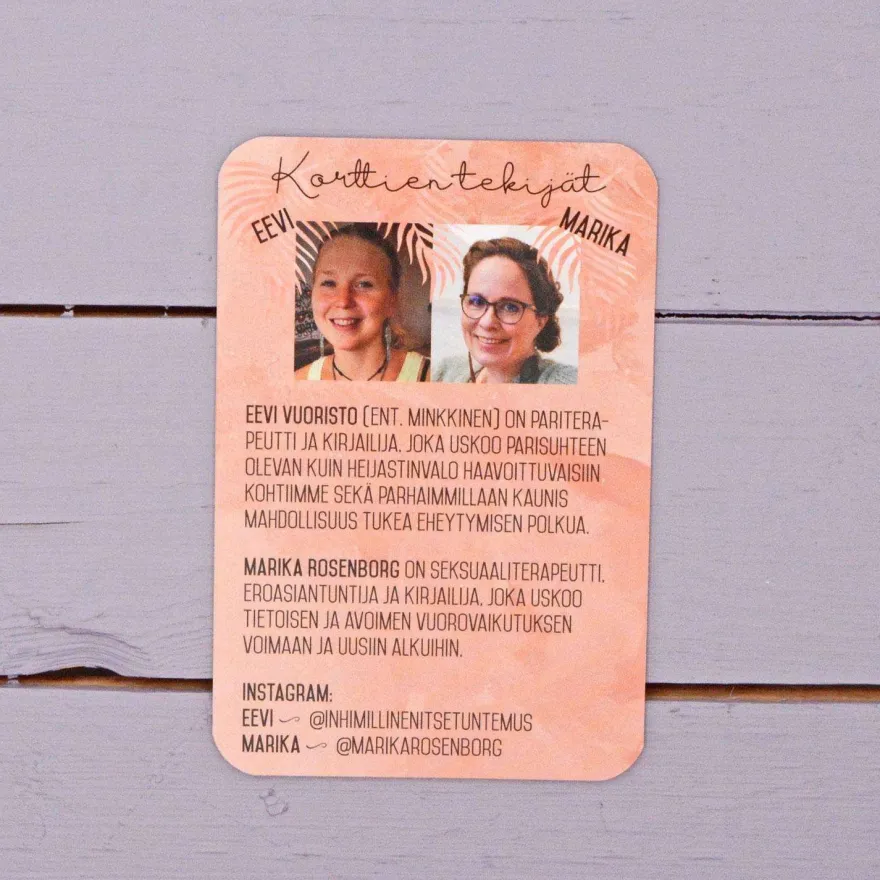 Korttien tekijät
EEVI
MARIKA
EEVI VUORISTO (ENT. MINKKINEN) ON PARITERA-
PEUTTI JA KIRJAILIJA, JOKA USKOO PARISUHTEEN
OLEVAN KUIN HEIJASTINVALO HAAVOITTUVAISIIN
KOHTIIMME SEKÄ PARHAIMMILLAAN KAUNIS
MAHDOLLISUUS TUKEA EHEYTYMISEN POLKUA.
MARIKA ROSENBORG ON SEKSUAALITERAPEUTTI,
EROASIANTUNTIJA JA KIRJAILIJA, JOKA USKOO
TIETOISEN JA AVOIMEN VUOROVAIKUTUKSEN
VOIMAAN JA UUSIIN ALKUIHIN.
INSTAGRAM:
EEVI ~ @INHIMILLINENITSETUNTEMUS
MARIKA ~ @MARIKAROSENBORG